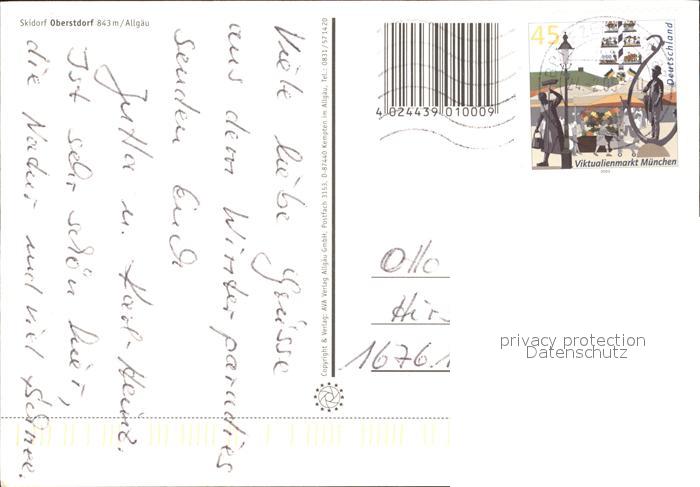 Skidorf Oberstdorf 843 m/Allgäu
Viele liebe Grüsse
aus dem Winterparadies
senden Euch
Jutta u. Karl-Heinz.
Ist sehr schön hier,
die Natur und viel Schnee.
Copyright & Verlag: AVA Verlag Allgäu GmbH, Postfach 3153, D-87440 Kempten im Allgäu, Tel.: 0831/571420
4 024439 010009
45
Deutschland
Viktualienmarkt München
2003
Otto
16761
privacy protection
Datenschutz